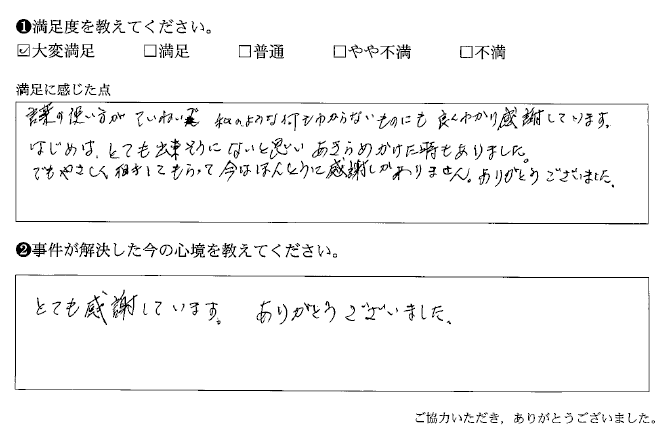 ❶満足度を教えてください。
☑大変満足 □満足 □普通 □やや不満 □不満
満足に感じた点
言葉の使い方がていねいで 私のような何もわからないものにも良くわかり感謝しています。
はじめは、とても出来そうにないと思い あきらめかけた時もありました。
でもやさしく してもらって今はほんとうに感謝しかありません。ありがとうございました。
❷事件が解決した今の心境を教えてください。
とても感謝しています。 ありがとうございました。
ご協力いただき，ありがとうございました。